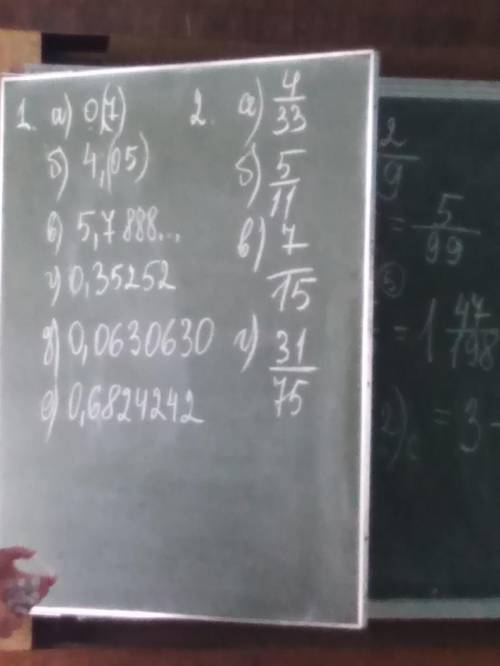 1. а) 0,(7)
б) 4,(05)
в) 5,7888...
г) 0,35252
д) 0,0630630
е) 0,6824242
2. а) 4/33
б) 5/11
в) 7/15
г) 31/75
2/9
= 5/99
= 1 47/198
= 3 -